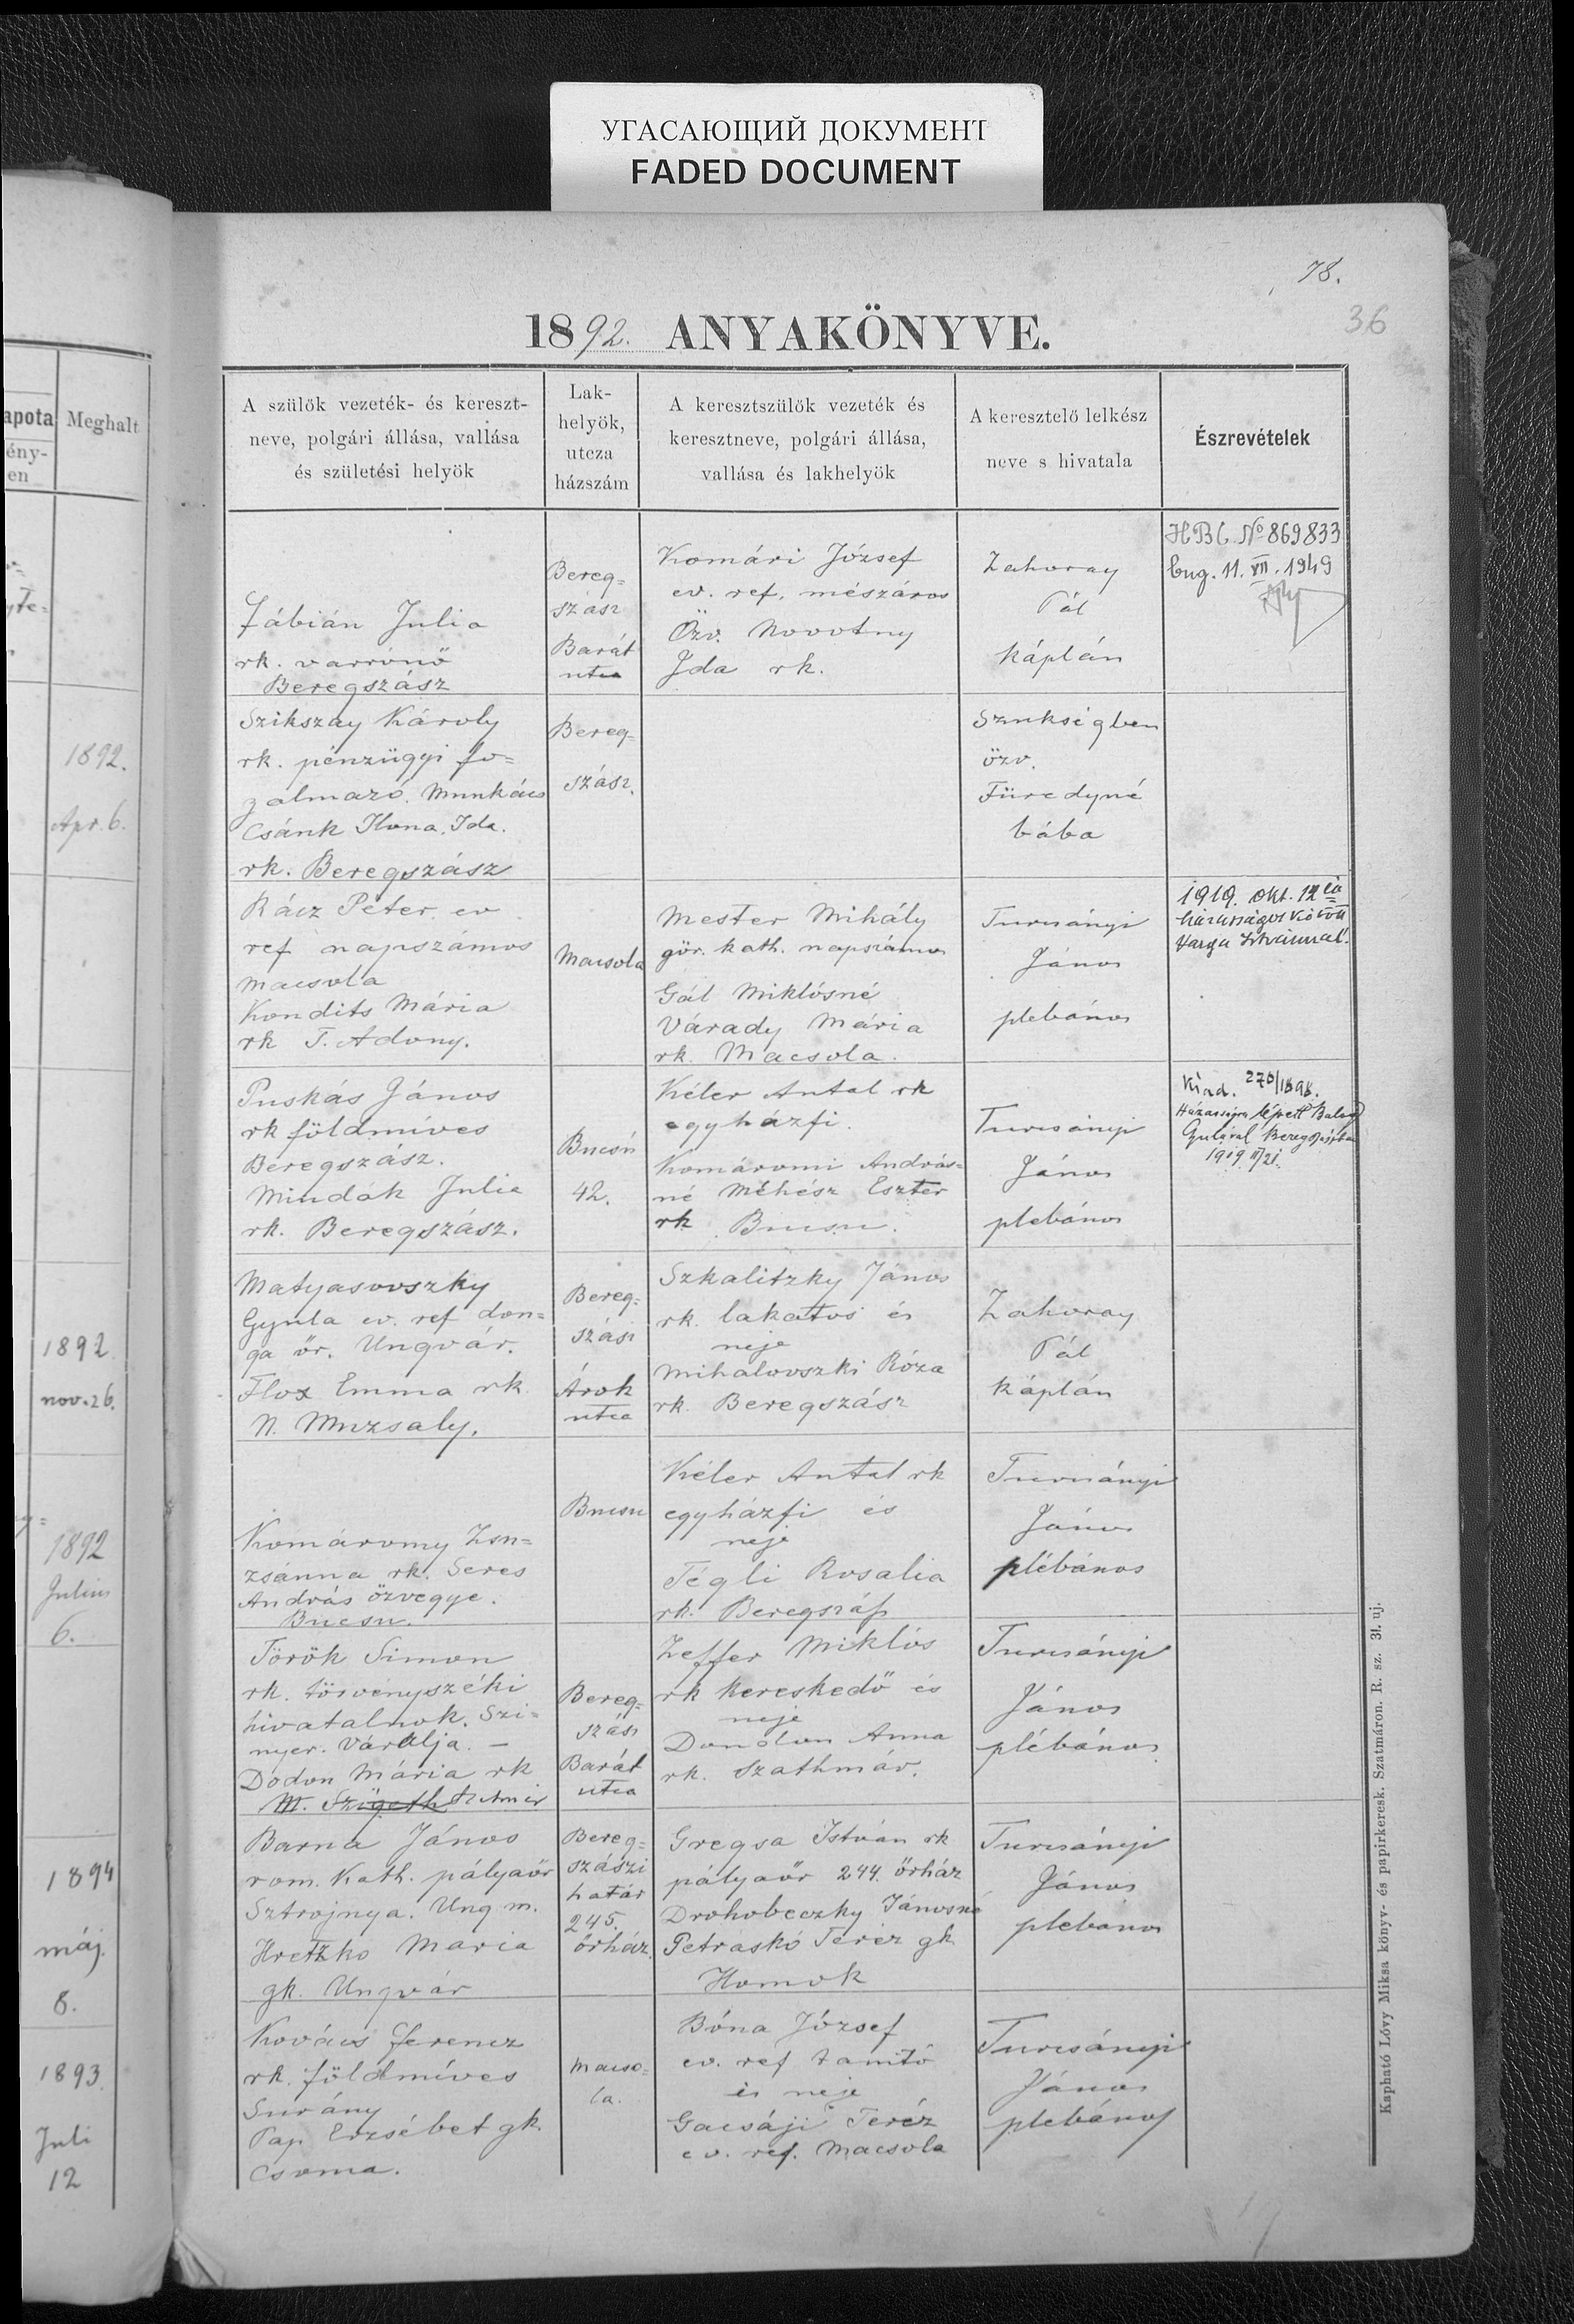 УГАСАЮЩИЙ ДОКУМЕНТ
FADED DOCUMENT
78.
36
1892. ANYAKÖNYVE.
apota
Meghalt
ény-
en
1892.
Apr. 6.
1892
nov. 26.
1892
Julius
6.
1894
máj.
8.
1893.
Juli
12
A szülők vezeték- és kereszt-
neve, polgári állása, vallása
és születési helyök
Lak-
helyök,
utcza
házszám
A keresztszülők vezeték és
keresztneve, polgári állása,
vallása és lakhelyök
A keresztelő lelkész
neve s hivatala
Észrevételek
Fábián Julia
rk. varrónő
Beregszász
Bereg=
szász
Barát
utca
Komári József
ev. ref. mészáros
Özv. Novotny
Ida rk.
Zahoray
Pál
káplán
No 869833
11. VII. 1949
Szikszay Károly
rk. pénzügyi fo=
galmazó. Munkács
Csánk Ilona. Ida.
rk. Beregszász
Bereg=
szász.
Szükségben
özv.
Füredyné
bába
Rácz Péter ev
ref napszámos
Macsola
Kondits Mária
rk T. Adony.
Macsola
Mester Mihály
gör. kath. napszámos
Gál Miklósné
Várady Mária
rk. Macsola.
Turcsányi
János
plebános
1919. okt. 12 én
házasságot kötött
Varga Istvánnal.
Puskás János
rk földmíves
Beregszász.
Mindák Julia
rk. Beregszász.
Bucsú
42.
Kéler Antal rk
egyházfi.
Komáromi András=
né Méhész Eszter
rk Bucsu.
Turcsányi
János
plebános
Kiad. 270/1898.
Házasságra lépett Balog
Gulával Beregszászban
1919 II/21.
Matyasovszky
Gyula ev. ref don=
ga őr. Ungvár.
Flox Emma rk.
N. Muzsaly.
Bereg=
szász
Árok
utca
Szkalitzky János
rk. lakatos és
neje
Mihalovszki Róza
rk. Beregszász
Zahoray
Pál
káplán
Komáromy Zsu=
zsánna rk. Seres
András özvegye.
Bucsu.
Bucsu
Kéler Antal rk
egyházfi és
neje
Tégli Rosalia
rk. Beregszász
Turcsányi
János
plébános
Török Simon
rk. törvényszéki
hivatalnok. Szi=
nyer. Váralja. —
Dodon Mária rk
M. Szigeth
Bereg=
szász
Barát
utca
Zeffer Miklós
rk kereskedő és
neje
Dondon Anna
rk. Szathmár.
Turcsányi
János
plébános
Barna János
rom. Kath. pályaőr
Sztrojnya. Ung m.
Hretzko Maria
gk. Ungvár
Bereg=
szászi
határ
245.
őrház.
Gregsa István rk
pályaőr 244. őrház
Drohobeczky Jánosné
Petraskó Teréz gk
Homok
Turcsányi
János
plebános
Kovács Ferencz
rk. földmíves
Surány
Pap Erzsébet gk.
Csoma.
Macso=
la.
Bóna József
ev. ref tanító
és neje
Gacsáji Teréz
ev. ref. Macsola
Turcsányi
János
plebános
Kapható Lővy Miksa könyv- és papirkeresk. Szatmáron. R. sz. 31. uj.